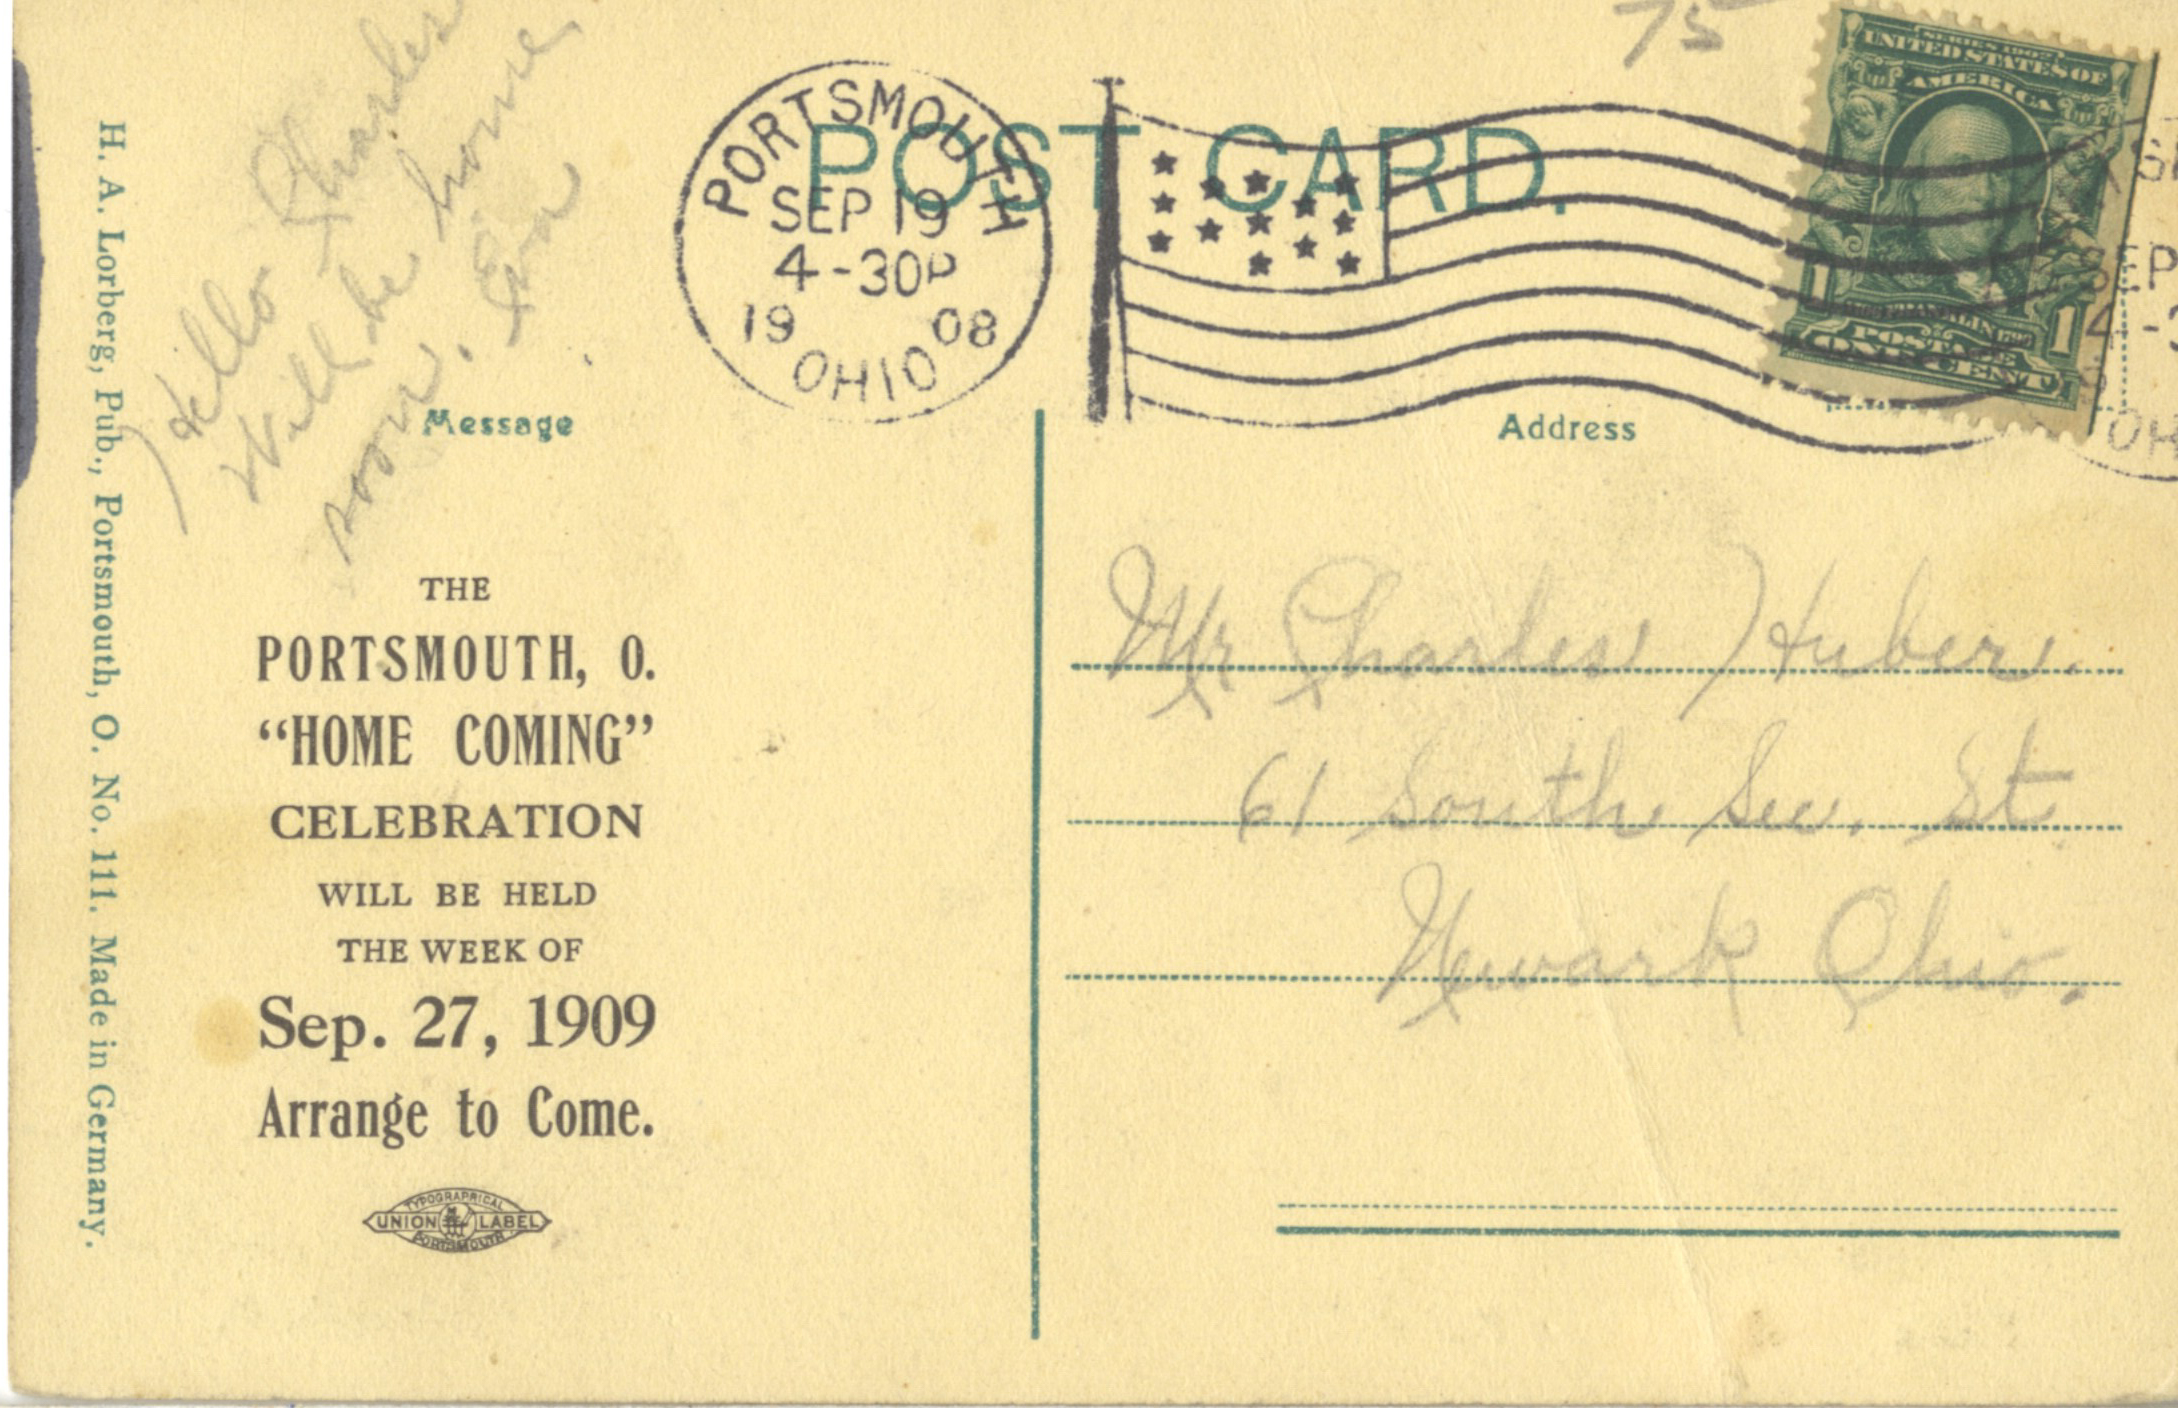 75
POST CARD.
PORTSMOUTH
SEP 19
4-30P
19 08
OHIO
SERIES 1902
UNITED STATES OF
AMERICA
1 1
POSTAGE
ONE CENT
SEP
OH
Hello Charles
Will be home
soon. Eva
Message
Address
H. A. Lorberg, Pub., Portsmouth, O. No. 111. Made in Germany.
THE
PORTSMOUTH, O.
“HOME COMING”
CELEBRATION
WILL BE HELD
THE WEEK OF
Sep. 27, 1909
Arrange to Come.
TYPOGRAPHICAL
UNION LABEL
PORTSMOUTH
Mr Charles Huber.
61 South Sec. St
Newark Ohio.